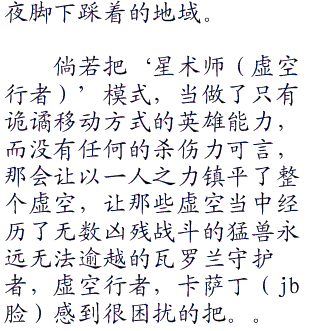 夜脚下踩着的地域。
倘若把‘星术师（虚空
行者）’模式，当做了只有
诡谲移动方式的英雄能力，
而没有任何的杀伤力可言，
那会让以一人之力镇平了整
个虚空，让那些虚空当中经
历了无数凶残战斗的猛兽永
远无法逾越的瓦罗兰守护
者，虚空行者，卡萨丁（jb
脸）感到很困扰的把。。